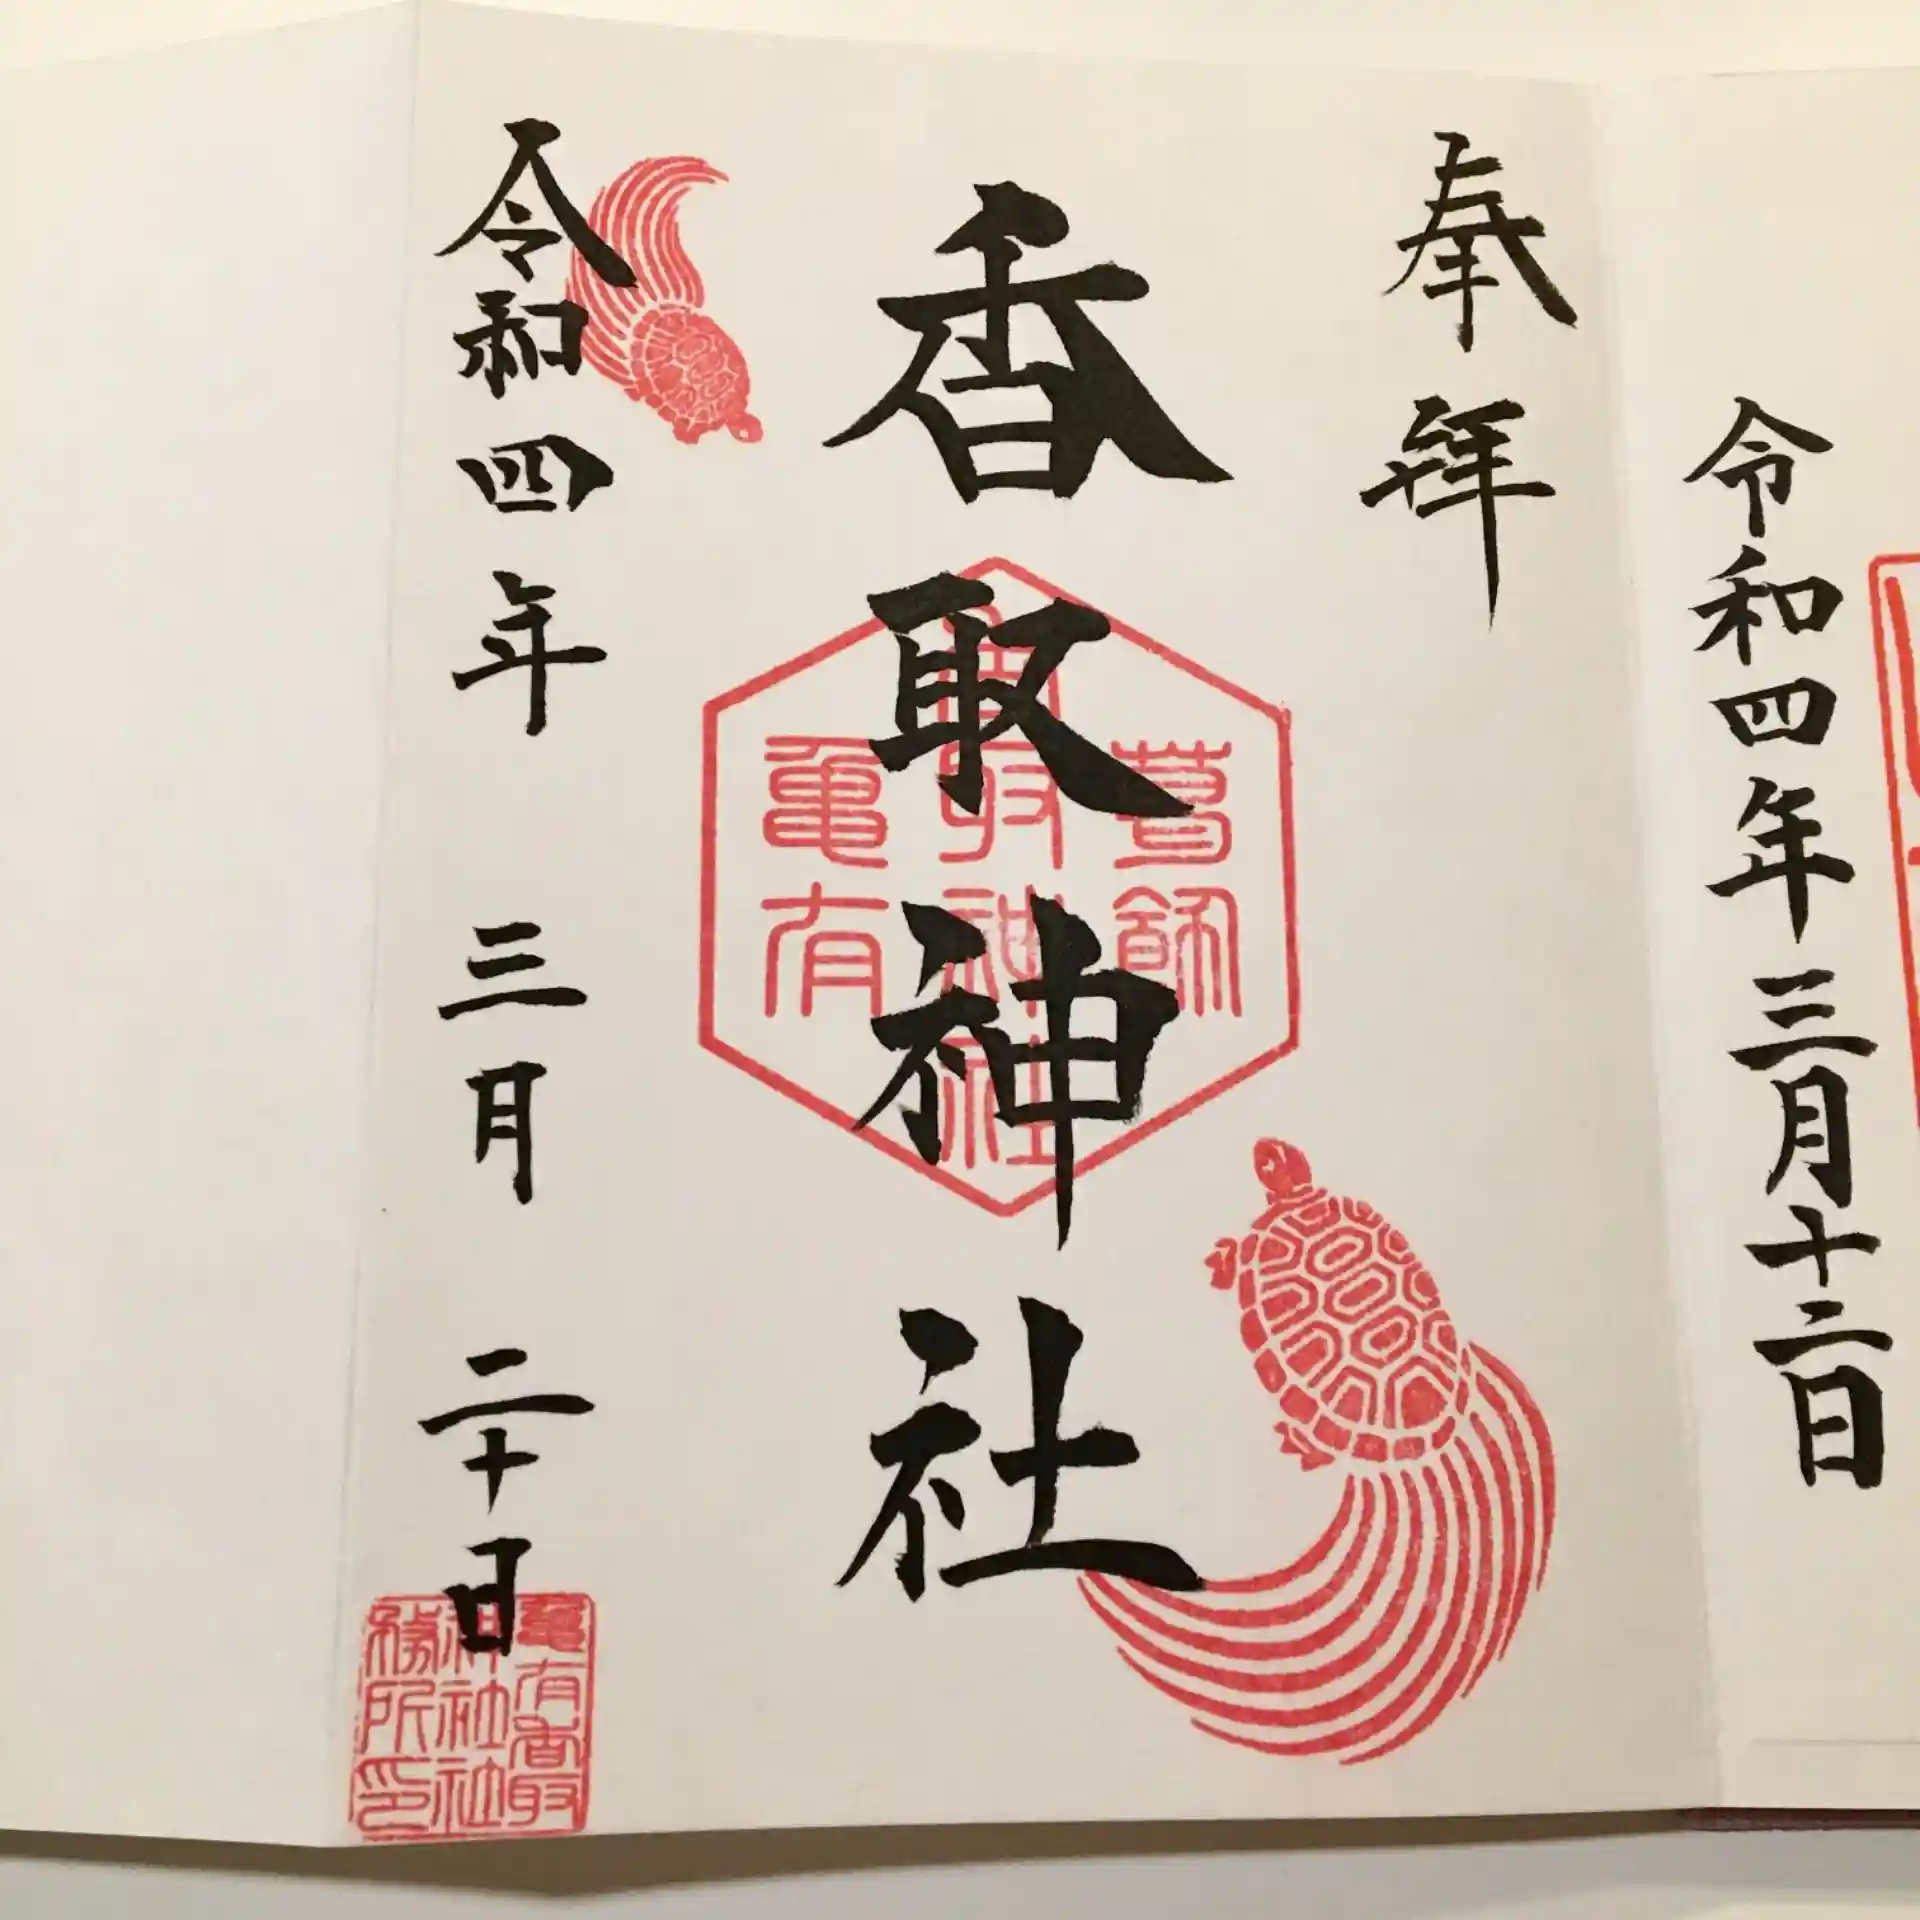 令和四年三月十二日
奉拝
香取神社
葛飾
香取神社
亀有
令和四年 三月 二十日
亀有香取
神社社
務所印